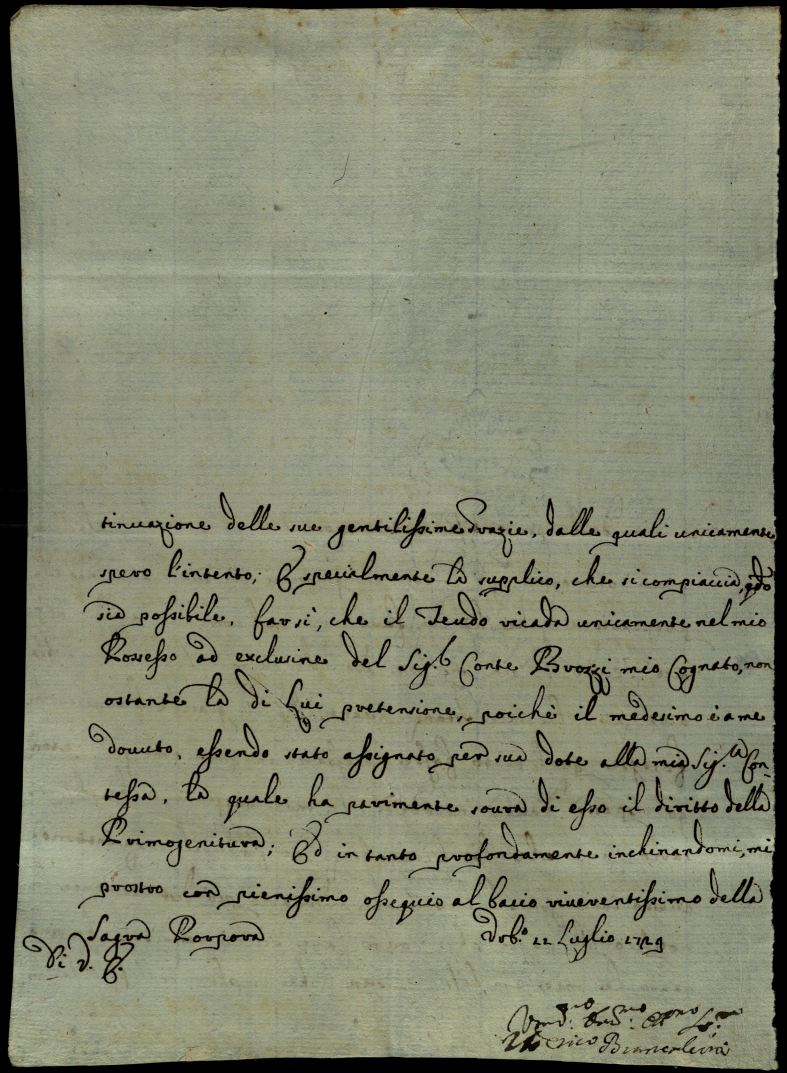 tinuazione delle sue gentilissime Grazie, dalle quali unicamente
spero l'intento; E specialmente la supplico, che si compiaccia, qdo
sia possibile, far sì, che il Feudo ricada unicamente nel mio
Possesso ad exclusine del Sig.r Conte Brozzi mio Cognato, non
ostante la di Lui pretensione, poichè il medesimo è a me
douuto, essendo stato assignato per sua dote alla mia Sig.ra Con-
tessa, la quale ha parimente soura di esso il diritto della
Primogenitura; Ed in tanto profondamente inchinandomi, mi
prostro con pienissimo ossequio al bacio riuerentissimo della
Sagra Porpora
Luglio 1729
Di V. E.